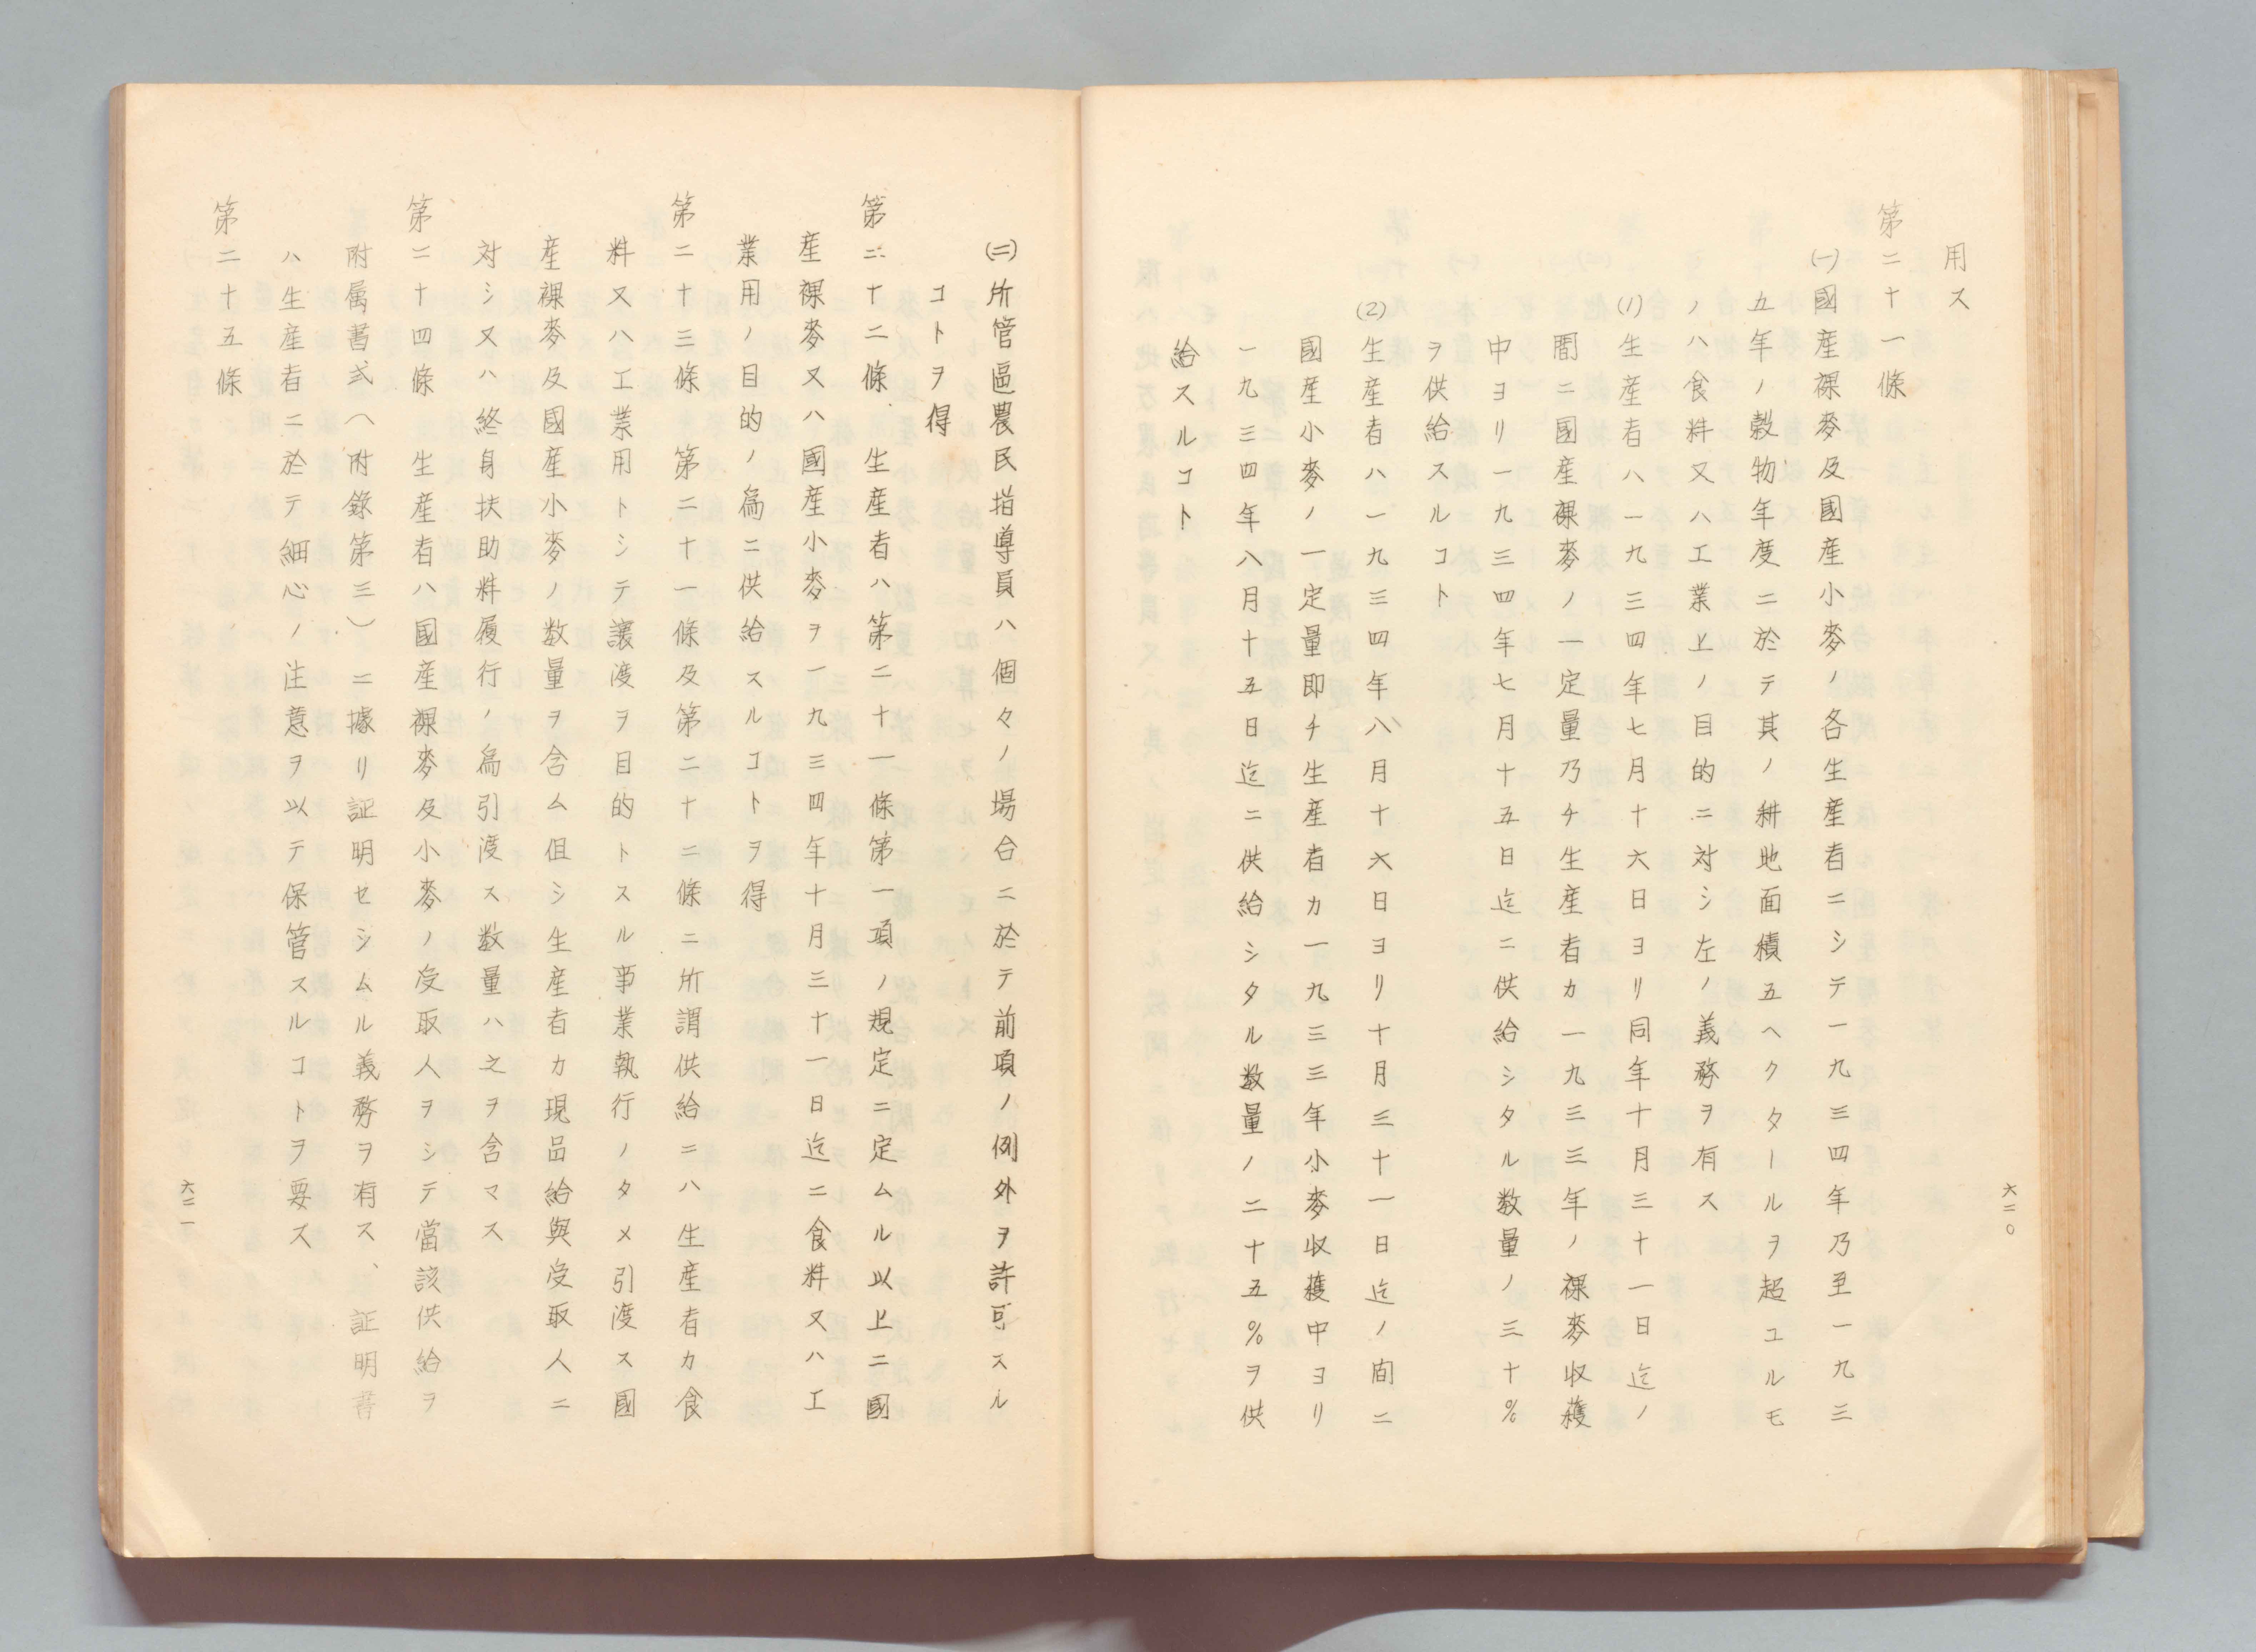 用ス
第二十一條
㈠國産裸麥及國産小麥ノ各生産者ニシテ一九三四年乃至一九三
五年ノ穀物年度ニ於テ其ノ耕地面積五ヘクタールヲ超ユルモ
ノハ食料又ハ工業上ノ目的ニ対シ左ノ義務ヲ有ス
⑴生産者ハ一九三四年七月十六日ヨリ同年十月三十一日迄ノ
間ニ國産裸麥ノ一定量乃チ生産者カ一九三三年ノ裸麥收穫
中ヨリ一九三四年七月十五日迄ニ供給シタル数量ノ三十%
ヲ供給スルコト
⑵生産者ハ一九三四年八月十六日ヨリ十月三十一日迄ノ間ニ
國産小麥ノ一定量即チ生産者カ一九三三年小麥收穫中ヨリ
一九三四年八月十五日迄ニ供給シタル数量ノ二十五%ヲ供
給スルコト
六二〇
㈡所管區農民指導員ハ個々ノ場合ニ於テ前項ノ例外ヲ許可スル
コトヲ得
第二十二條 生産者ハ第二十一條第一項ノ規定ニ定ムル以上ニ國
産裸麥又ハ國産小麥ヲ一九三四年十月三十一日迄ニ食料又ハ工
業用ノ目的ノ爲ニ供給スルコトヲ得
第二十三條 第二十一條及第二十二條ニ所謂供給ニハ生産者カ食
料又ハ工業用トシテ讓渡ヲ目的トスル事業執行ノタメ引渡ス國
産裸麥及國産小麥ノ数量ヲ含ム但シ生産者カ現品給與受取人ニ
対シ又ハ終身扶助料履行ノ爲引渡ス数量ハ之ヲ含マス
第二十四條 生産者ハ國産裸麥及小麥ノ受取人ヲシテ當該供給ヲ
附属書式（附錄第三）ニ據リ証明セシムル義務ヲ有ス、証明書
ハ生産者ニ於テ細心ノ注意ヲ以テ保管スルコトヲ要ス
第二十五條
六二一